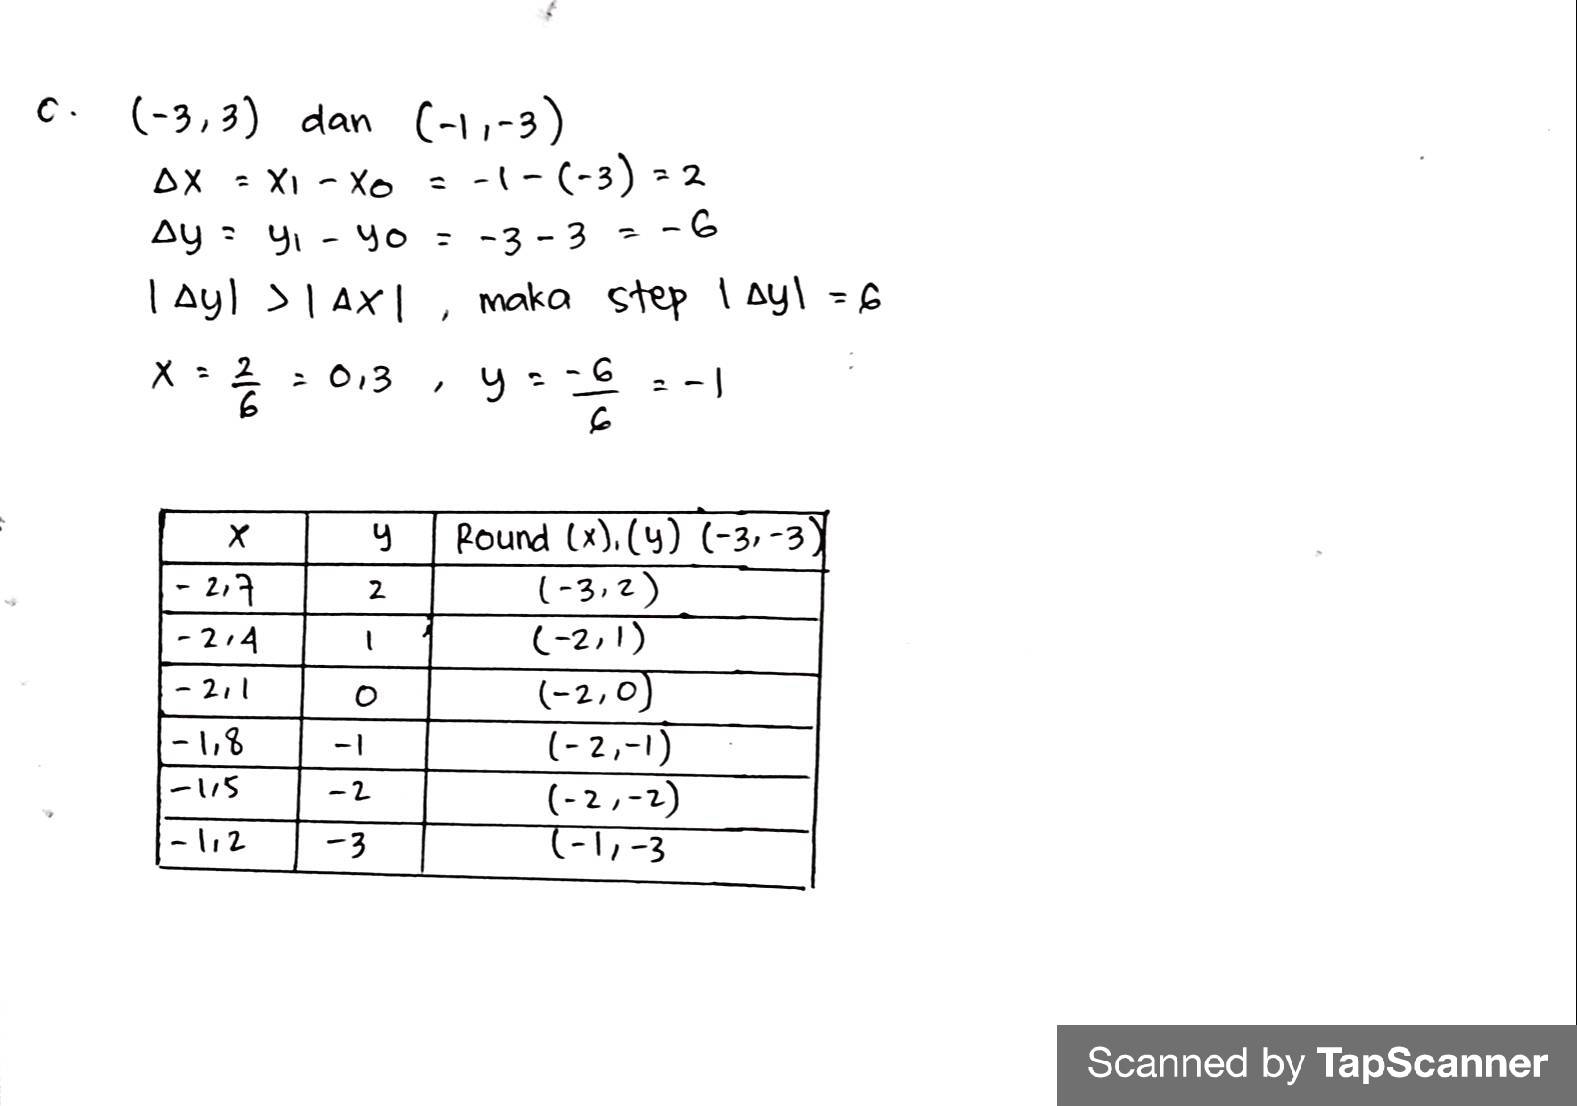 c. (-3,3) dan (-1,-3)
Δx = x1 - x0 = -1-(-3) = 2
Δy = y1 - y0 = -3-3 = -6
|Δy| > |Δx|, maka step |Δy| = 6
x = 2/6 = 0,3, y = -6/6 = -1
x y Round (x),(y) (-3,-3)
-2,7 2 (-3,2)
-2,4 1 (-2,1)
-2,1 0 (-2,0)
-1,8 -1 (-2,-1)
-1,5 -2 (-2,-2)
-1,2 -3 (-1,-3
Scanned by TapScanner